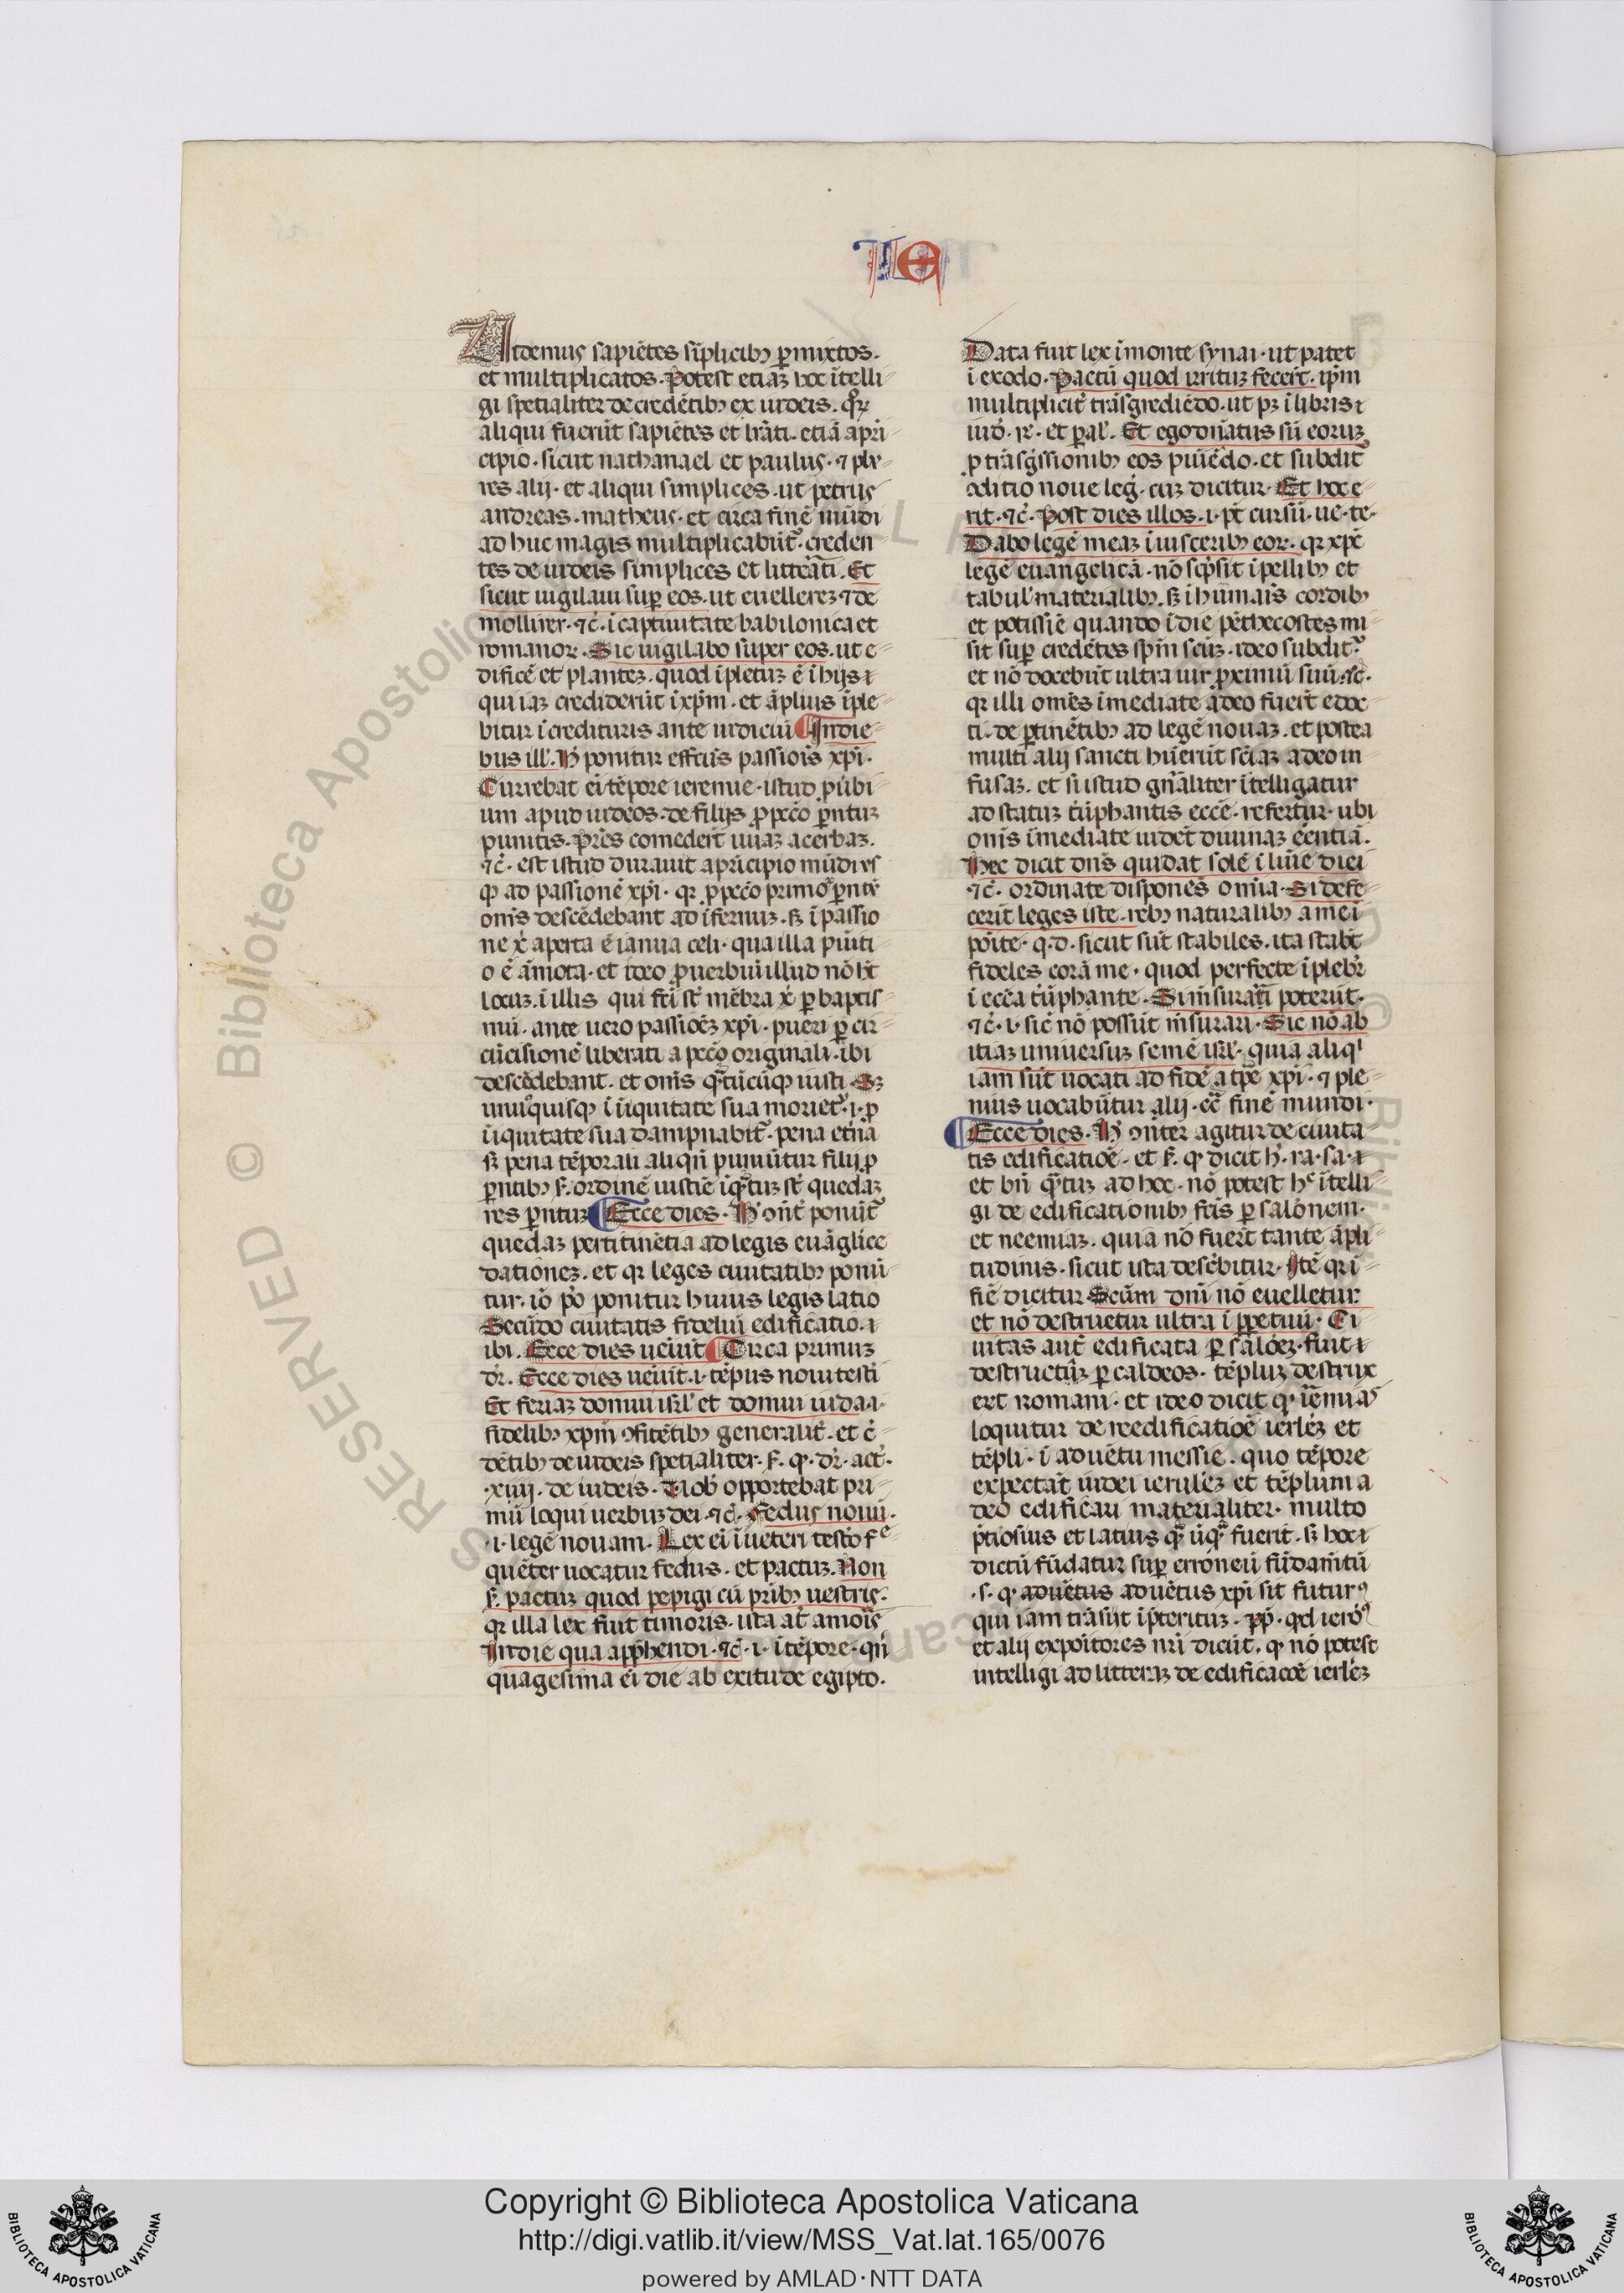 IE
Uidemus sapiētes sīplicibꝫ ꝑmixtos.
et multiplicatos. Potest etiaꝫ hoc ītelli
gi spetialiter de credētibꝫ ex iudeis. qꝛ
aliqui fuerūt sapiētes et lrāti. etiā a pri
cipio. sicut nathanael et paulus. ⁊ plu
res alij. et aliqui simplices. ut petrus
andreas. matheus. et circa finē mūdi
ad huc magis multiplicabūt᷒. creden
tes de iudeis simplices et litterāti. Et
sicut uigilaui suꝑ eos. ut euellereꝫ ⁊ de
mollirer. ⁊c̄. ī captiuitate babilonica et
romanoꝝ. Sic uigilabo super eos. ut e
dificē et planteꝫ. quod īpletuꝫ ē ī hijs
qui iaꝫ crediderūt ī xp̄m. et āplius īple
bitur ī credituris ante iudiciū ¶ In die
bus ill'. H̄ ponitur effcūs passiois xp̄i.
Currebat ei tēpore ieremie. istud ꝓūbi
um apud iudeos. de filijs ꝓ pctō ꝑntuꝫ
punitis. Pres comederūt uuaꝫ acerbaꝫ.
⁊c̄. est istud durauit a prīcipio mūdi us
qꝫ ad passionē xp̄i. qꝛ ꝓ pctō primoꝝ ꝑntū
onīs descēdebant ad īfernuꝫ. sꝫ ī passio
ne x̄ aperta ē ianua celi. qua illa pūiti
o ē āmota. et ideo ꝓuerbiū illud nō hꝫ
locuꝫ. ī illis qui fc̄i st̄ mēbra x̄ ꝑ baptis
mū. ante uero passioēꝫ xp̄i. pueri ꝑ cir
cūcisionē liberati a pctō originali. ibi
descēdebant. et onīs qᵃtūcūqꝫ iusti. Sꝫ
unusquisqꝫ ī iiquitate sua moriet᷒. i. ꝓ
iiquitate sua dampnabit᷒. pena etn̄a
sꝫ pena tēporali aliqn̄ puniūtur filij ꝓ
ꝑntibꝫ s. ordinē iustie īqᵃtuꝫ st̄ quedaꝫ
res ꝑntuꝫ ¶ Ecce dies. H̄ ꝯn̄t ponūt᷒
quedaꝫ pertitinētia ad legis euāglice
dationeꝫ. et qꝛ leges ciuitatibꝫ ponū
tur. iō pō ponitur huius legis latio
Secūdo ciuitatis fideliū edificatio.
ibi. Ecce dies ueiūt ¶ Circa primuꝫ
dr̄. Ecce dies ueiūt. i. tēpus noui testi
Et feriaꝫ domui isrl' et domui iuda. i.
fidelibꝫ xp̄m ꝯfitētibꝫ generalit̄. et c̄
dētibꝫ de iudeis spetialiter. s. qꝫ. dr̄. act̄.
.xiiij. de iudeis. Uobꝫ opportebat pri
mū loqui uerbuꝫ dei. ⁊c̄. Fedus nouū.
.i. legē nouam. Lex ei ī ueteri testo fᵉ
quēter uocatur fedus. et pactuꝫ. Non
s. pactuꝫ quod pepigi cū pribꝫ uestris.
qꝛ illa lex fiut timoris. ista at̄ amoris
In die qua app̄hendi. ⁊c̄. i. ī tēpore. qn̄
quagesima ei die ab exitu de egipto.
Data fuit lex ī monte synai. ut patet
ī exodo. Pactū quod irrituꝫ fecert̄. ip̄m
multiplicit̄ trāsgrediēdo. ut pꝫ ī libris
iud. re. et ꝑal'. Et ego dn̄atus sū eoruꝫ
ꝓ trāsgssionibꝫ eos puiēdo. et subdit᷒
ꝯditio noue leg. cuꝫ dicitur. Et hoc e
rit. ⁊c̄. Post dies illos. i. pt̄ cursū. ue. te.
Dabo legē meaꝫ ī uisceribꝫ eoꝝ. qꝛ xp̄c
legē euangelicā. nō scp̄sit ī pellibꝫ et
tabul' materialibꝫ. sꝫ ī humais cordibꝫ
et potissīe quando ī die pēthecostes mi
sit suꝑ credētes sp̄m scūꝫ. ideo subdit᷒
et nō docebūt ultra uir ꝓximū suū. ⁊c̄.
qꝛ illi omēs īmediate a deo fuerūt edoc
ti. de ꝑtinētibꝫ ad legē nouaꝫ. et postea
multi alij sancti huerūt sciaꝫ a deo in
fusaꝫ. et si istud gn̄aliter ītelligatur
ad statuꝫ tūphantis ecc̄e. refertur. ubi
onīs īmediate uidet diuinaꝫ eēntiā.
Hec dicit dn̄s qui dat solē ī luīe diei
⁊c̄. ordinate disponēs omīa. Si defe
cerit leges iste. rebꝫ naturalibꝫ a me ī
pōite. q. d. sicut sūt stabiles. ita stabt̄
fideles corā me. quod perfecte īplebr̄
ī ecc̄a tūphante. Si msurari poterūt.
⁊c̄. i. sic nō possūt msurari. Sic nō ab
itiaꝫ uniuersuꝫ semē isrl'. quia aliqⁱ
iam sūt uocati ad fidē a tp̄e xp̄i. ⁊ ple
nius uocabūtur alij. cc̄ᵃ finē mundi.
¶ Ecce dies. H̄ ꝯn̄ter agitur de ciuita
tis edificatioē. et s. qꝫ dicit h̄. ra. sa.
et bn̄ qᵃtuꝫ ad hoc. nō potest hᶜ ītelli
gi de edificationibꝫ fc̄is ꝑ salōnem.
et neemiaꝫ. quia nō fuert̄ tante āpli
tudinis. sicut ista descbitur. Itē qꝛ ī
fīe dicitur Scūm dn̄i nō euelletur:
et nō destruetur ultra ī ꝑpetuū. Ci
uitas aut̄ edificata ꝑ salōēꝫ. fiut
destructūr ꝑ caldeos. tēpluꝫ destrux
ert̄ romani. et ideo dicit qꝫ iēmias
loquitur de reedificatioē ierlēꝫ et
tēpli. ī aduētu messie. quo tēpore
expectāt iudei ierulēꝫ et tēplum a
deo edificari materialiter. multo
ptiosius et latius qᵃ ūqᵃ fuerit. sꝫ hoc
dictū fūdatur suꝑ erroneū fūdamtū
.s. qꝫ aduētus aduētus xp̄i sit futurꝰ
qui iam trāsijt īpteritūꝫ. pp̄. qd ieroꝰ
et alij expōitores nr̄i dicūt. qꝫ nō potest
intelligi ad litteraꝫ de edificacoē ierlēꝫ
Copyright © Biblioteca Apostolica Vaticana
http://digi.vatlib.it/view/MSS_Vat.lat.165/0076
powered by AMLAD·NTT DATA
BIBLIOTECA APOSTOLICA VATICANA
BIBLIOTECA APOSTOLICA VATICANA